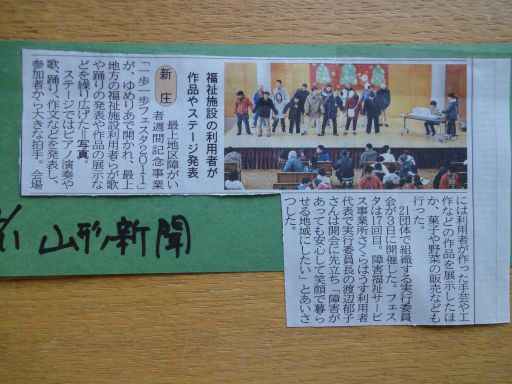 福祉施設の利用者が
作品やステージ発表
新庄
最上地区障がい
者週間記念事業
「一歩一歩フェスタ2011」
が、ゆめりあで開かれ、最上
地方の福祉施設利用者らが歌
や踊りの発表や作品の展示な
どを繰り広げた=写真。
ステージではピアノ演奏や
歌、踊り、作文などを発表し、
参加者から大きな拍手。会場
には利用者が作った手芸や工
作などの作品を展示したほ
か、菓子や野菜の販売なども
行った。
21団体で組織する実行委員
会が3日に開催した。フェス
タは11回目。障害福祉サービ
ス事業所さくらはうす利用者
代表で実行委員長の渡辺郁子
さんは開会に先立ち「障害が
あっても安心して笑顔で暮ら
せる地域にしたい」とあいさ
つした。
山形新聞